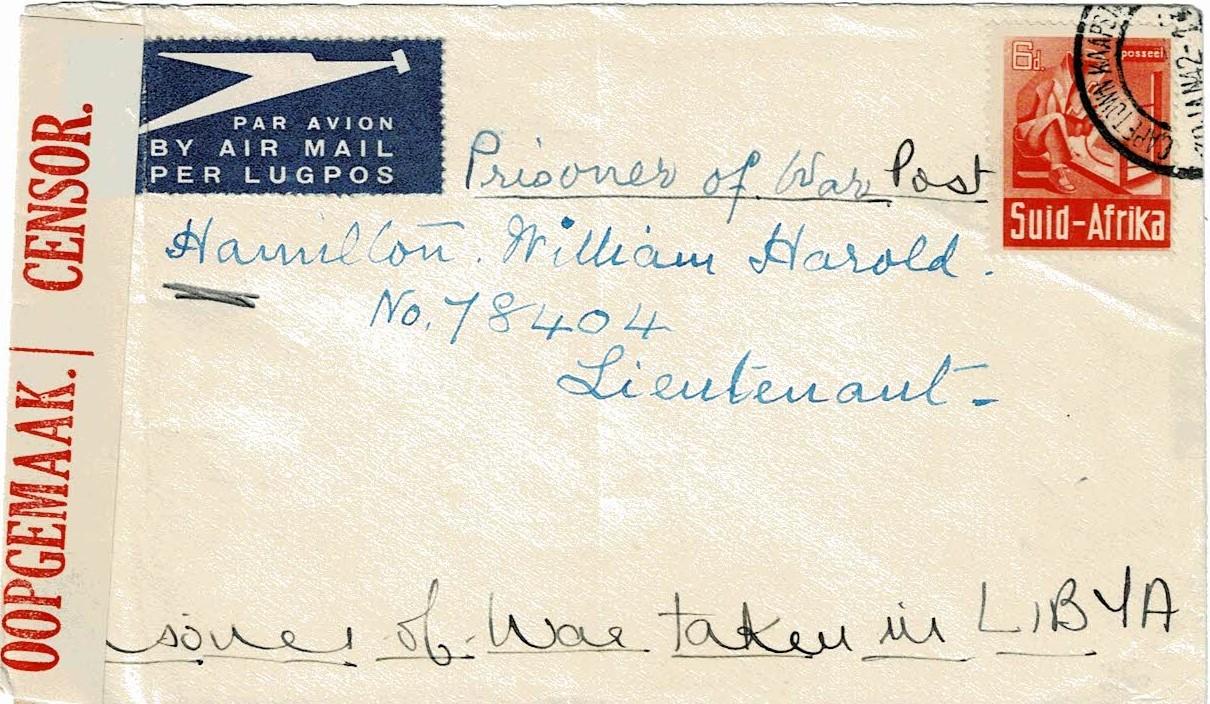 OOPGEMAAK. | CENSOR.
PAR AVION
BY AIR MAIL
PER LUGPOS
6d. posseël
CAPE TOWN KAAPSTA
JAN 42
Suid-Afrika
Prisoner of War Post
Hamilton. William Harold.
No. 78404
Lieutenant -
soner of War taken in LIBYA